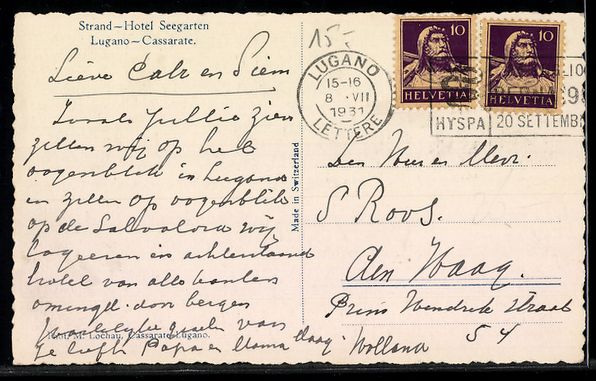 Strand - Hotel Seegarten
Lugano - Cassarate.
15-
LUGANO
15-16
8 . VII
1931
LETTERE
10
HELVETIA
10
HELVETIA
HYSPA
20 SETTEMB
Lieve Cato en Siem
Zooals jullie zien
zitten wij op het
oogenblik in Lugano
en zitten op oogenblik
op de Salvatore wij
logeeren in
hotel van alle kanten
omringd door bergen
Hartelijke groeten van
je liefh Papa en Mama
Made in Switzerland
Phot. M. Lochau, Cassarate-Lugano.
Den Heer en Mevr.
S Roos.
den Haag.
Prins Hendrik straat
54
Holland